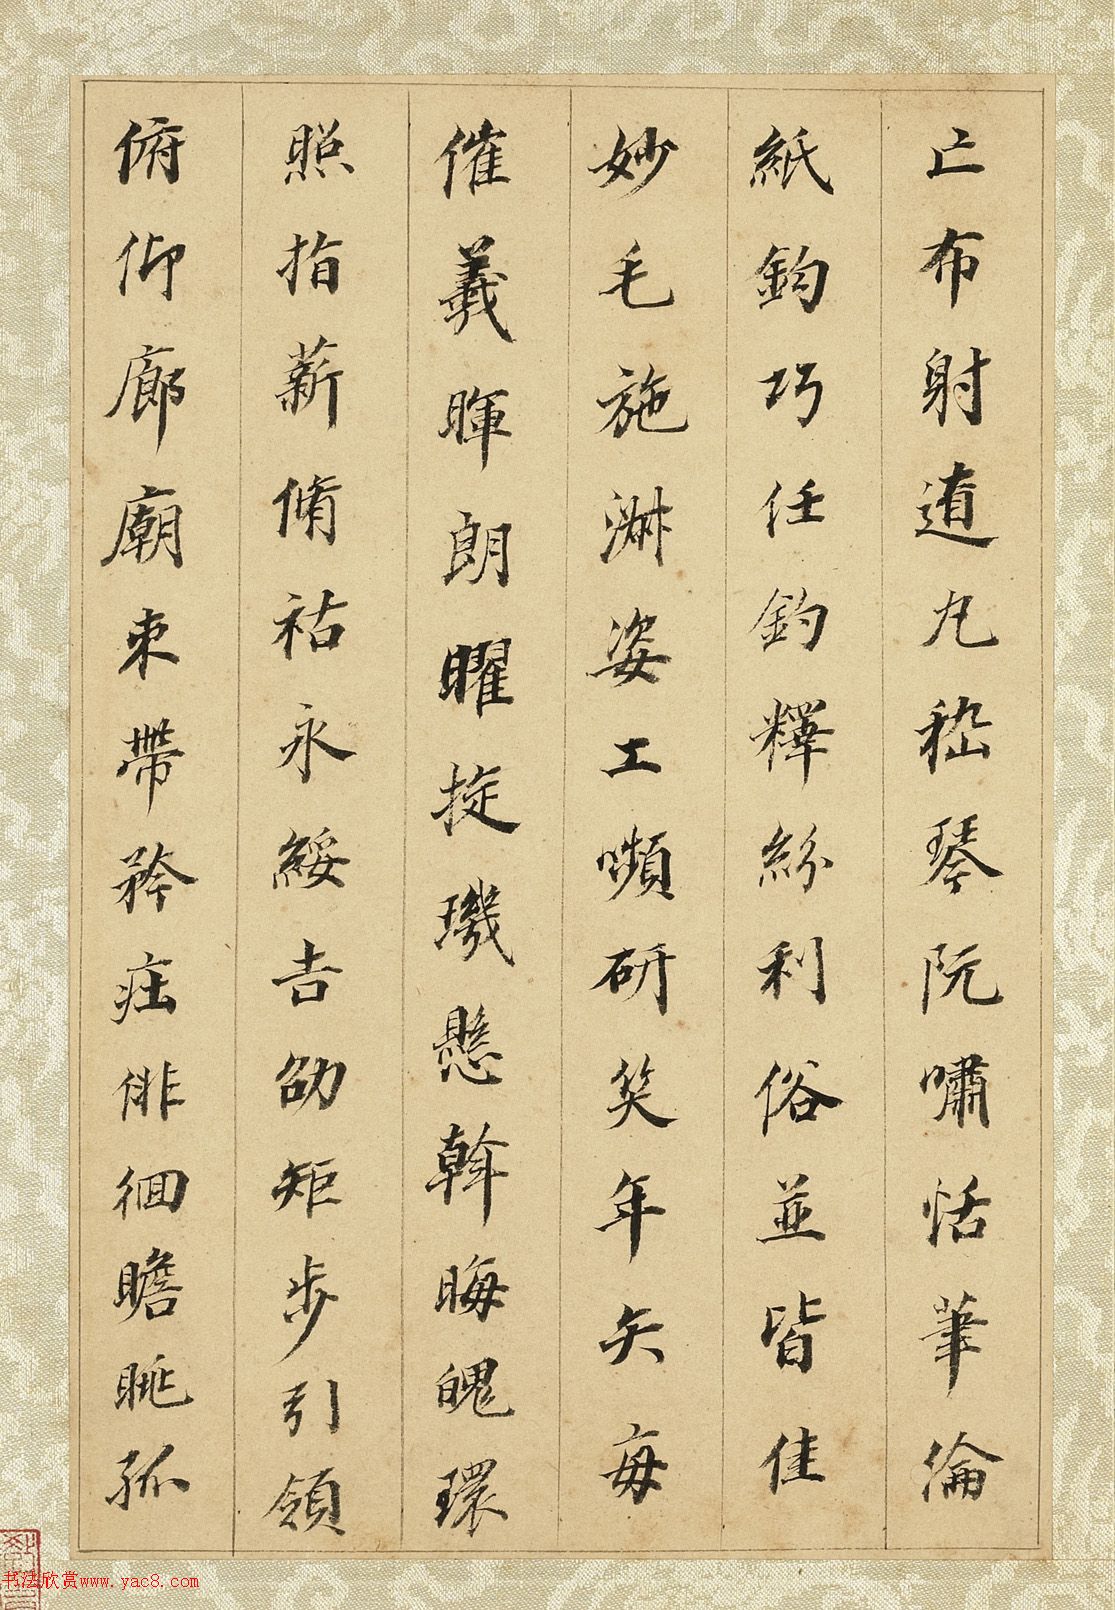 亡布射遼丸嵇琴阮嘯恬筆倫
紙鈞巧任釣釋紛利俗並皆佳
妙毛施淑姿工嚬研笑年矢每
催羲暉朗曜旋璣懸斡晦魄環
照指薪脩祜永綏吉劭矩步引領
俯仰廊廟束帶矜莊徘徊瞻眺孤
书法欣赏www.yac8.com